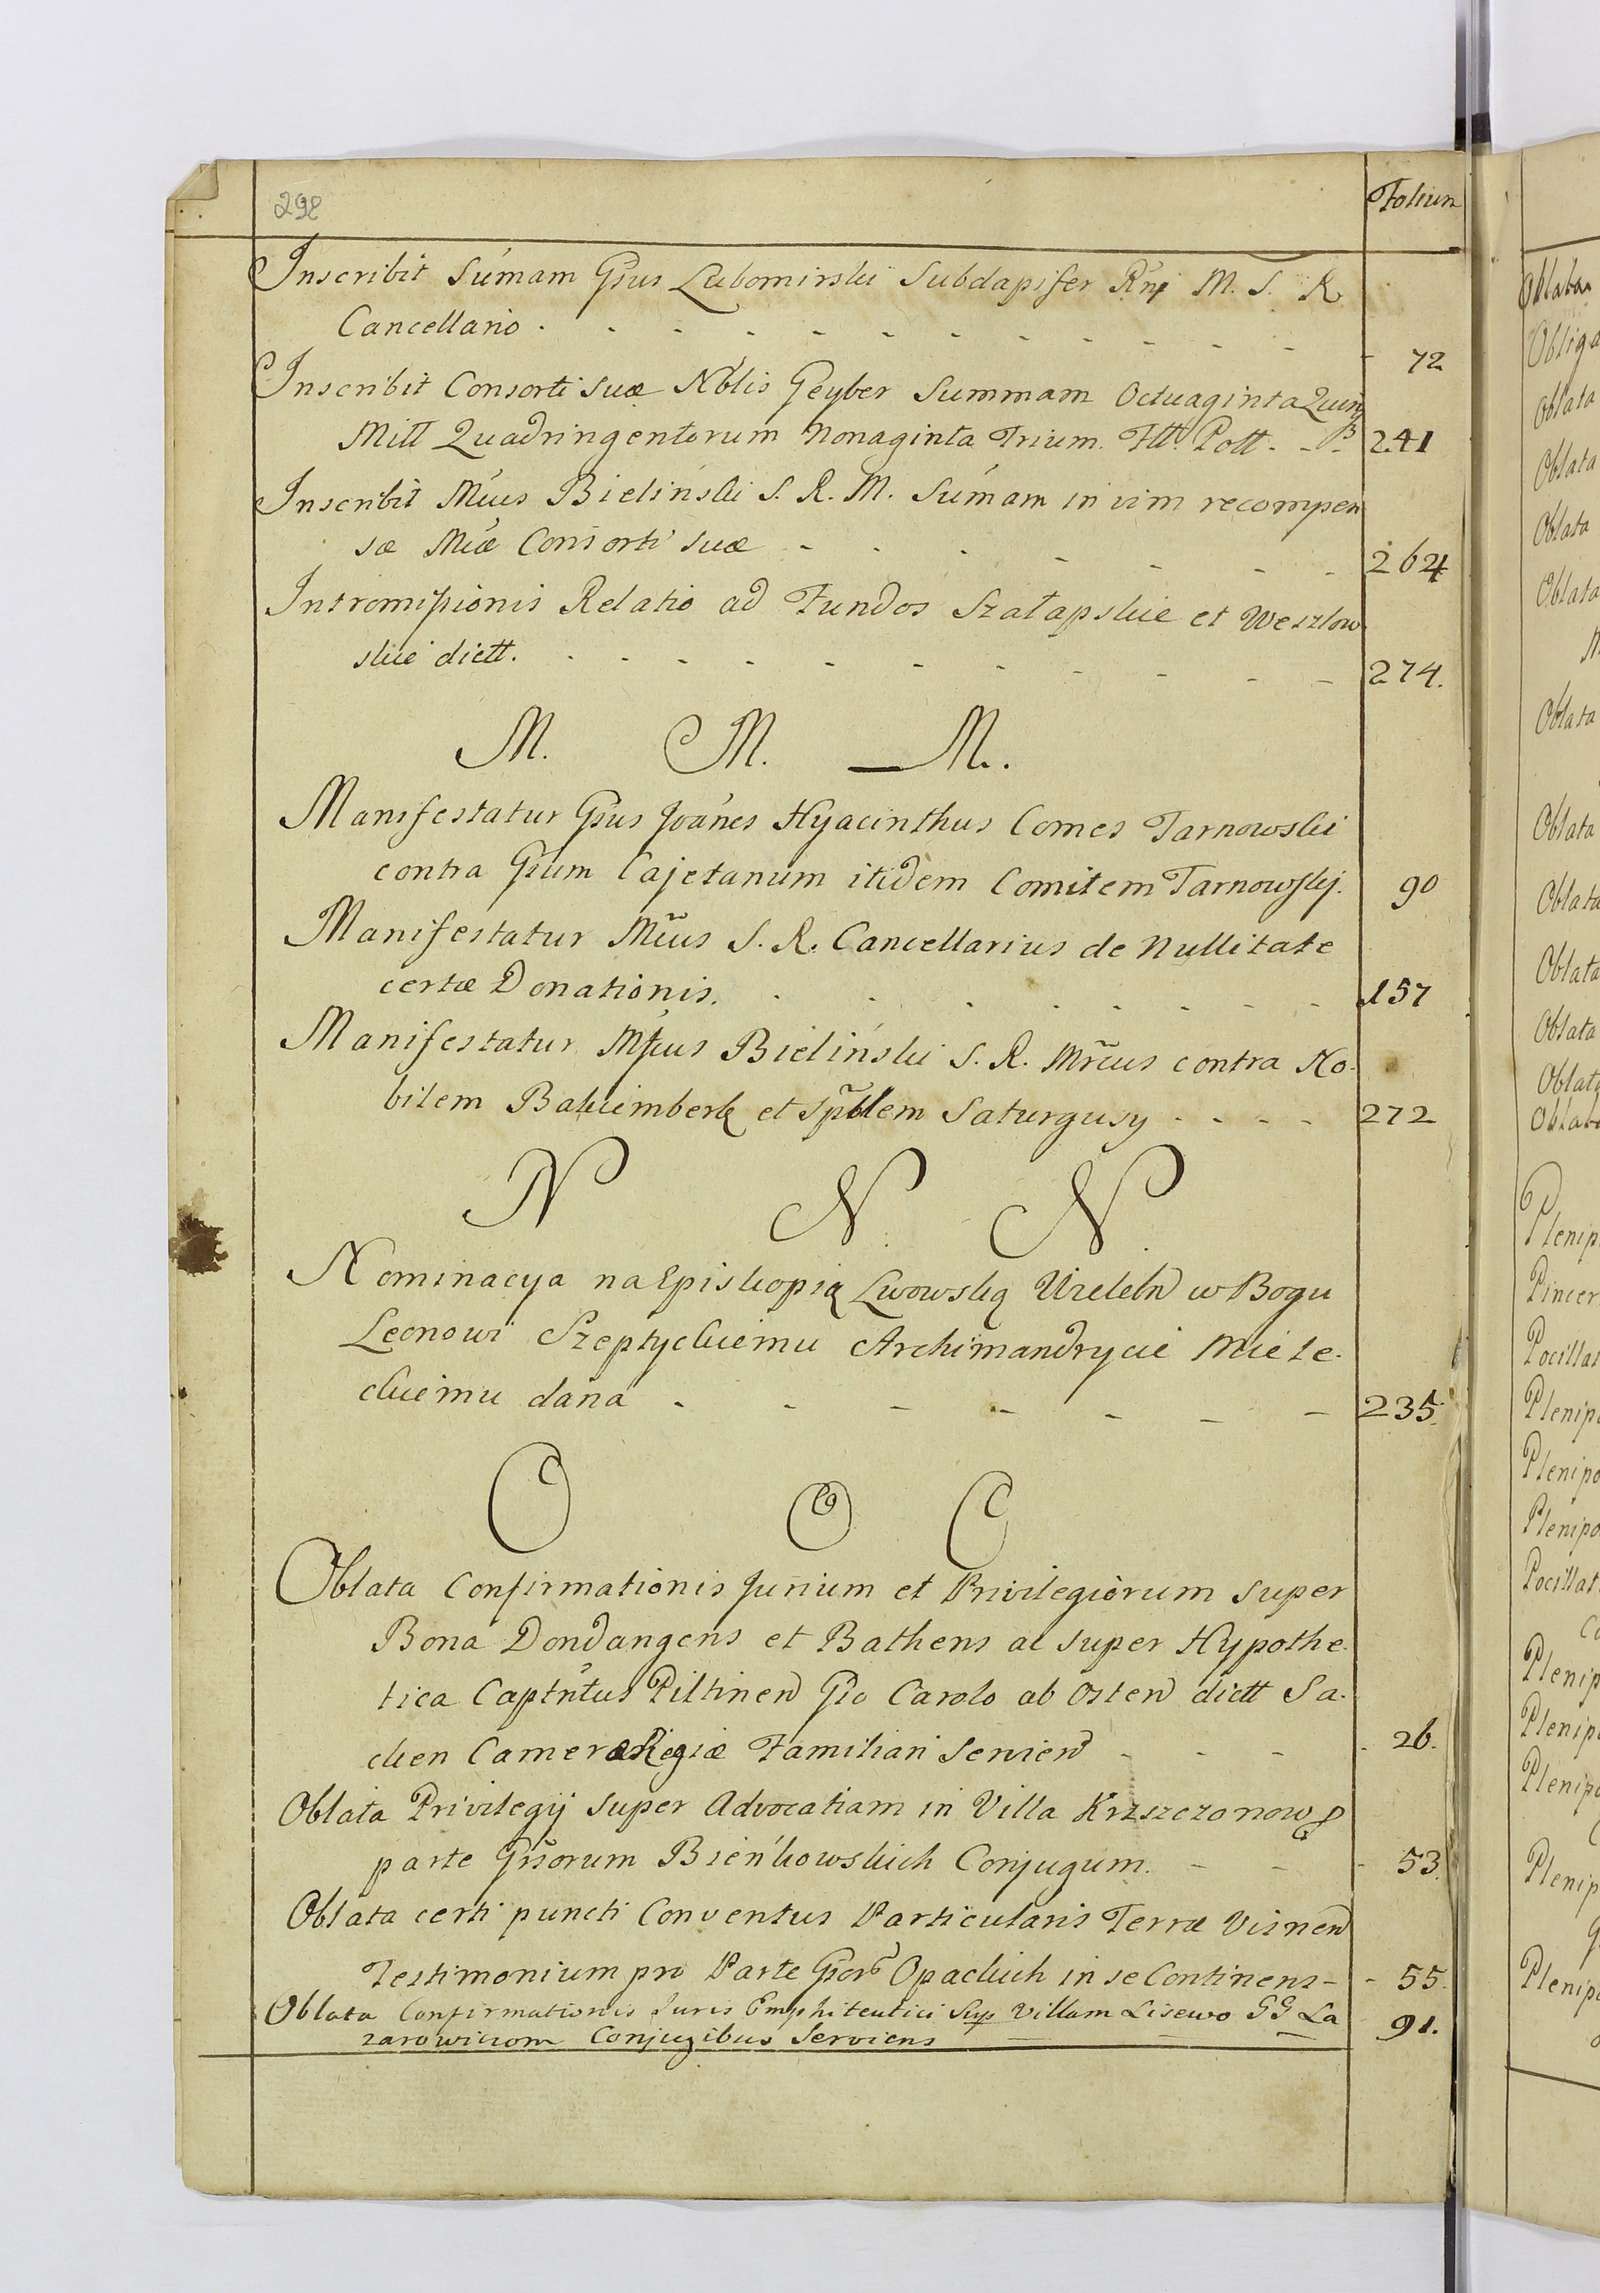 298
Folium
Inscribit Sumam Gsus Lubomirski Subdapifer Rni M. S. R.
Cancellario . - - - - - - - - - - - 72
Inscribit Consorti suæ Noblis Geyber Summam Octuaginta Quinq
Mill Quadringentorum Nonaginta Trium. Fltt. Poll. - - 241
Inscribit Mcus Bieliński S. R. M. Sumam in vim recompen
sæ Mcæ Consorti suæ - - - - - - - 264
Intromissionis Relatio ad Fundos Szałapskie et Weszlow
skie dictt. - - - - - - - - - - 274.
M. M. M.
Manifestatur Gsus Joanes Hyacinthus Comes Tarnowski
contra Gsum Cajetanum itidem Comitem Tarnowskj. 90
Manifestatur Mcus S. R. Cancellarius de Nullitate
certæ Donationis. - - - - - - - 157
Manifestatur Mcus Bieliński S. R. Mrcus contra No-
bilem Bakimberk et Sptblem Saturgusy - - - - 272
N N N
Nominacya na Episkopią Lwowską Wieleb w Bogu
Leonowi Szeptyckiemu Archimandrycie Miele-
ckiemu dana - - - - - - - 235.
O O O
Oblata Confirmationis Jurium et Privilegiorum super
Bona Dondangens et Bathens ac super Hypothe-
tica Captntus Piltinen Gso Carolo ab Osten dictt Sa-
cken Cameræ Regiæ Familiari Servien - - - - 26.
Oblata Privilegij super Advocatiam in Villa Krzszczonow p
parte Gsorum Bieńkowskich Conjugum. - - - 53.
Oblata certi puncti Conventus Particularis Terræ Visnen
Testimonium pro Parte Gsor Opackich in se Continens - - 55.
Oblata Confirmationis Juris Emphiteutici Sup Villam Lisewo GG La
zarowiciom Conjugibus Serviens - - - 91.
Oblata
Obliga
Oblata
Oblata
Oblata
Oblata
Oblata
Oblata
Oblata
Oblata
Oblata
Oblata
Oblata
Plenip
Pincer
Pocillat
Plenipo
Plenipo
Plenipo
Pocillat
Plenip
Plenip
Plenip
Plenip
Plenip